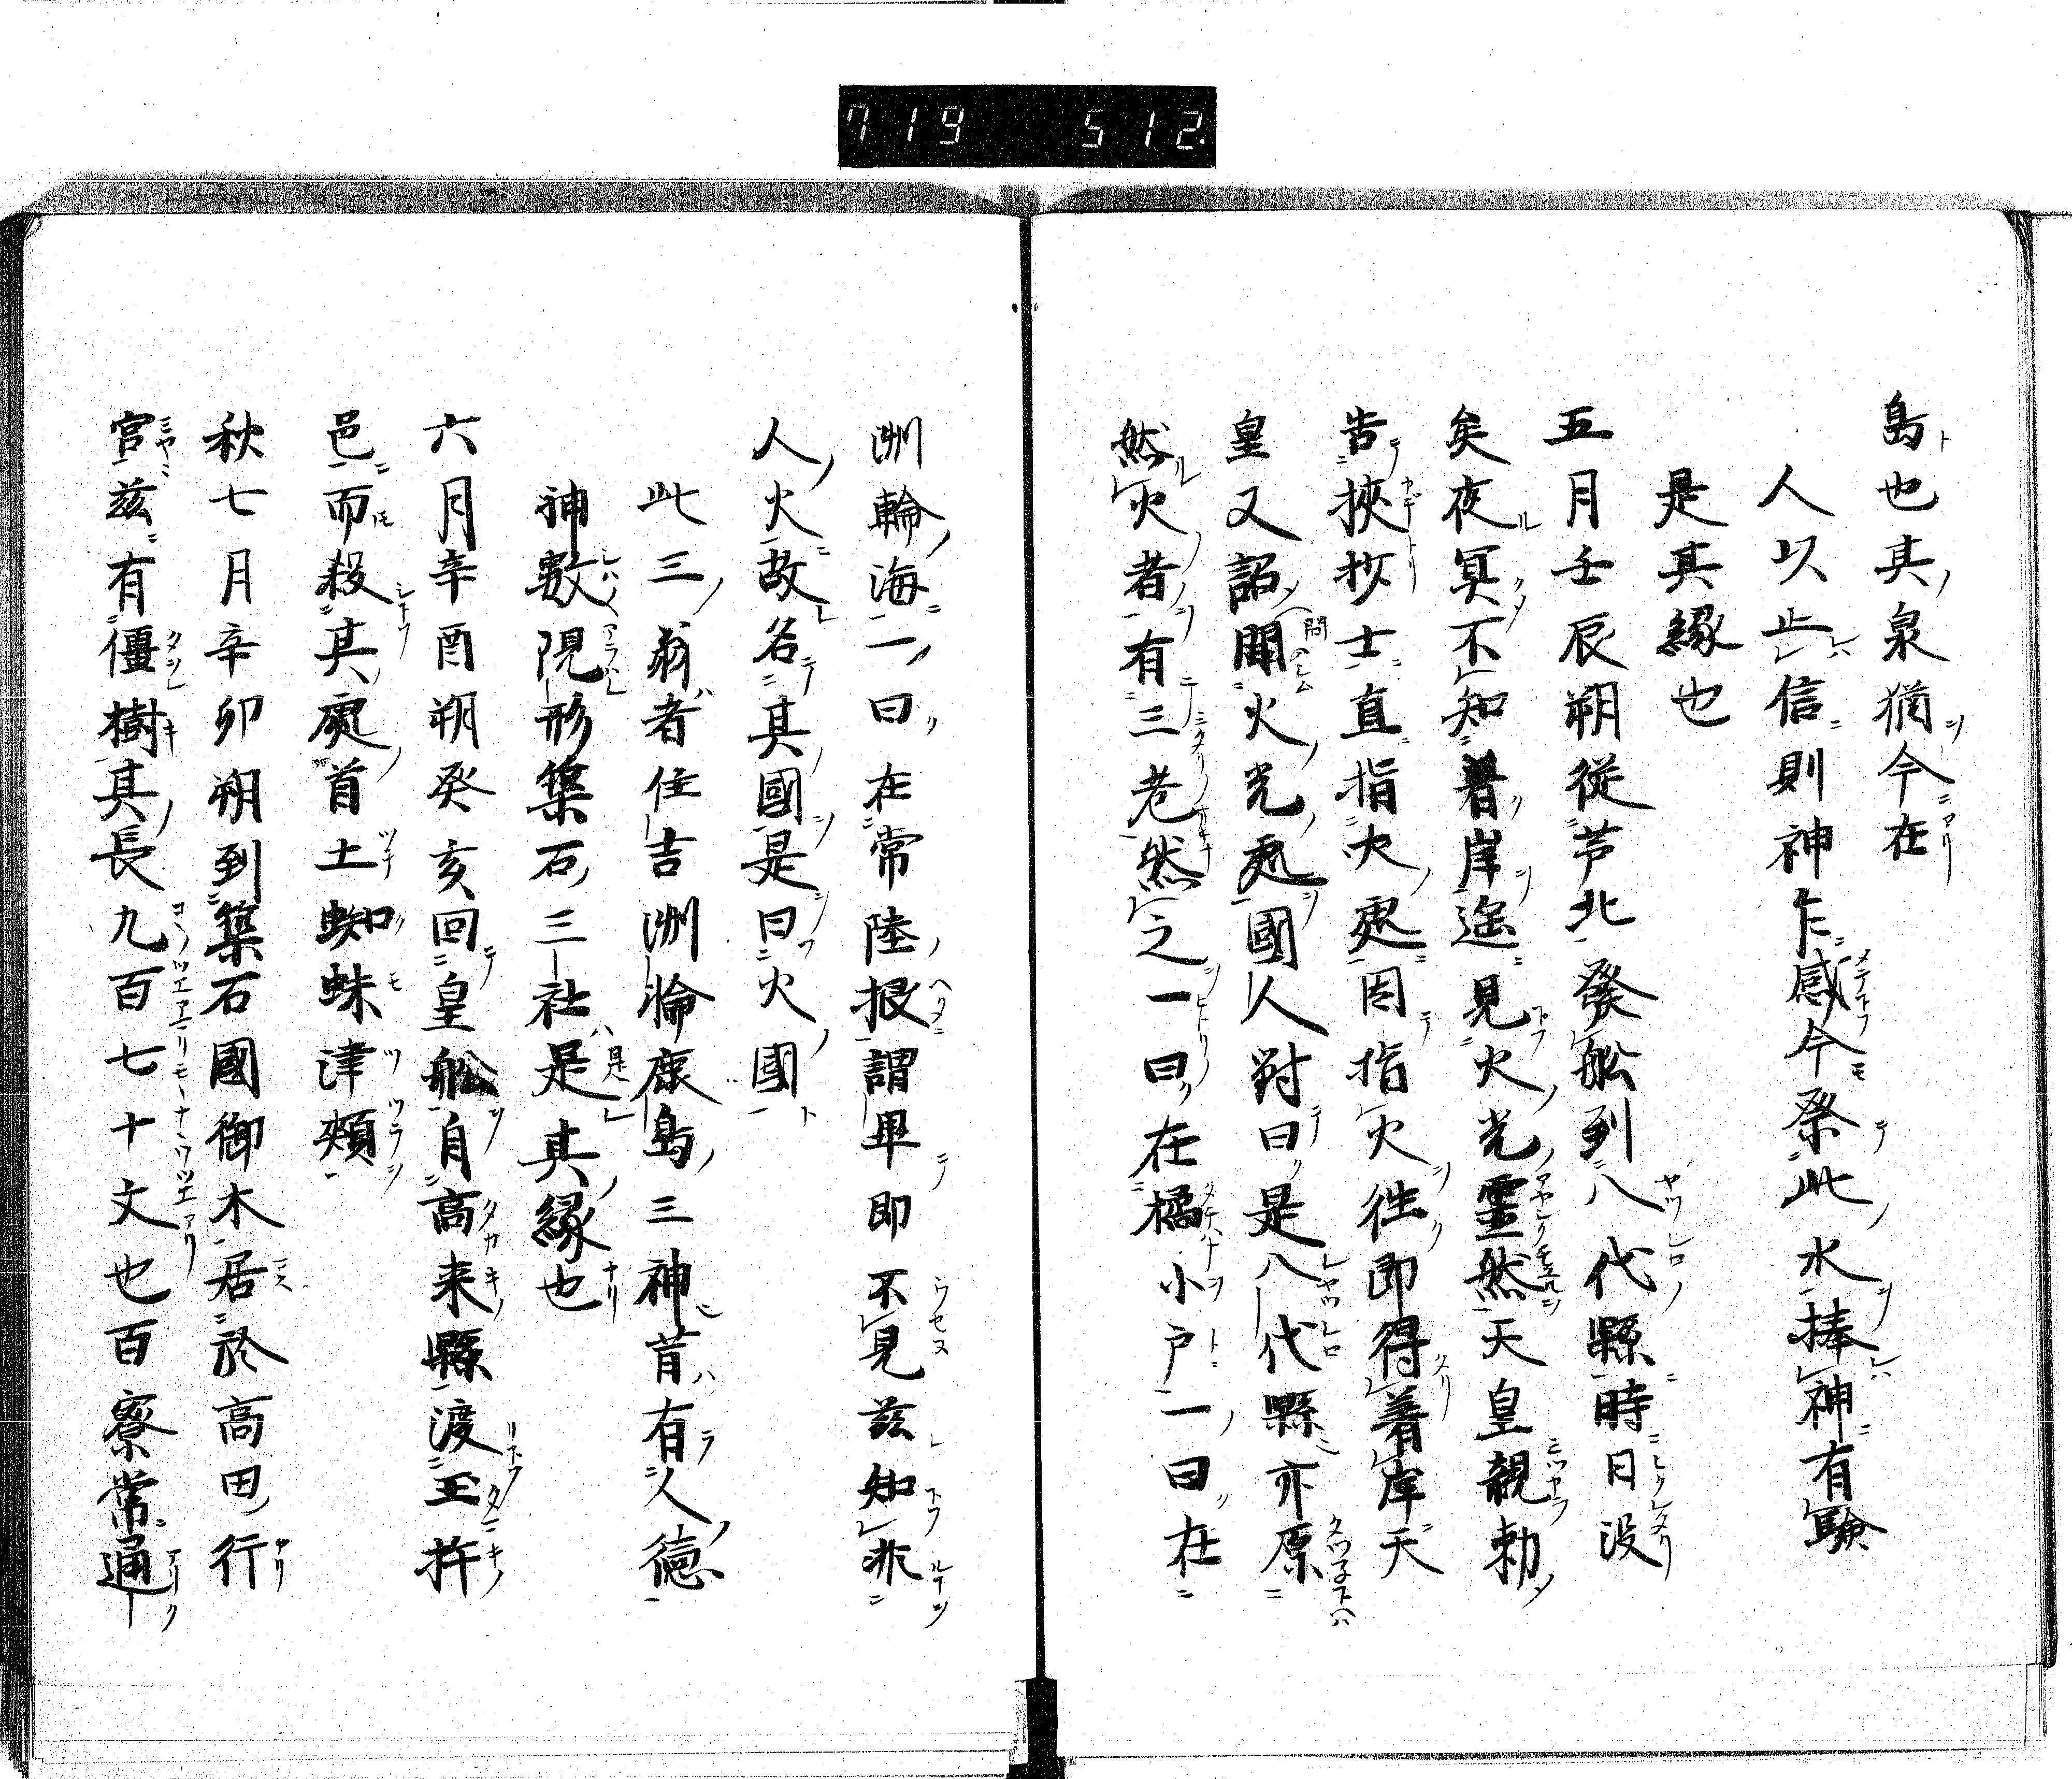 719 512.
島也其泉猶今在
人以止信則神乍感今祭此水捧神有驗
是其縁也
五月壬辰朔従芦北發舩到八代縣時日没
矣夜冥不知著岸遥見火光霊然天皇親勅
告挾抄士直指火處因指火徃即得着岸天
皇又詔聞火光處國人對曰是八代縣亦原
然火者有三老然之一曰在橘小戸一曰在
洲輪海一曰在常陸根謂畢即不見茲知非
人火故名其國是曰火國
此三翁者住吉洲輪鹿島三神昔有人徳
神數現形集石三社是其縁也
六月辛酉朔癸亥回皇舩自高来縣渡玉杵
邑而殺其處首土蜘蛛津頬
秋七月辛卯朔到築石國御木居於高田行
宮茲有僵樹其長九百七十丈也百寮常通